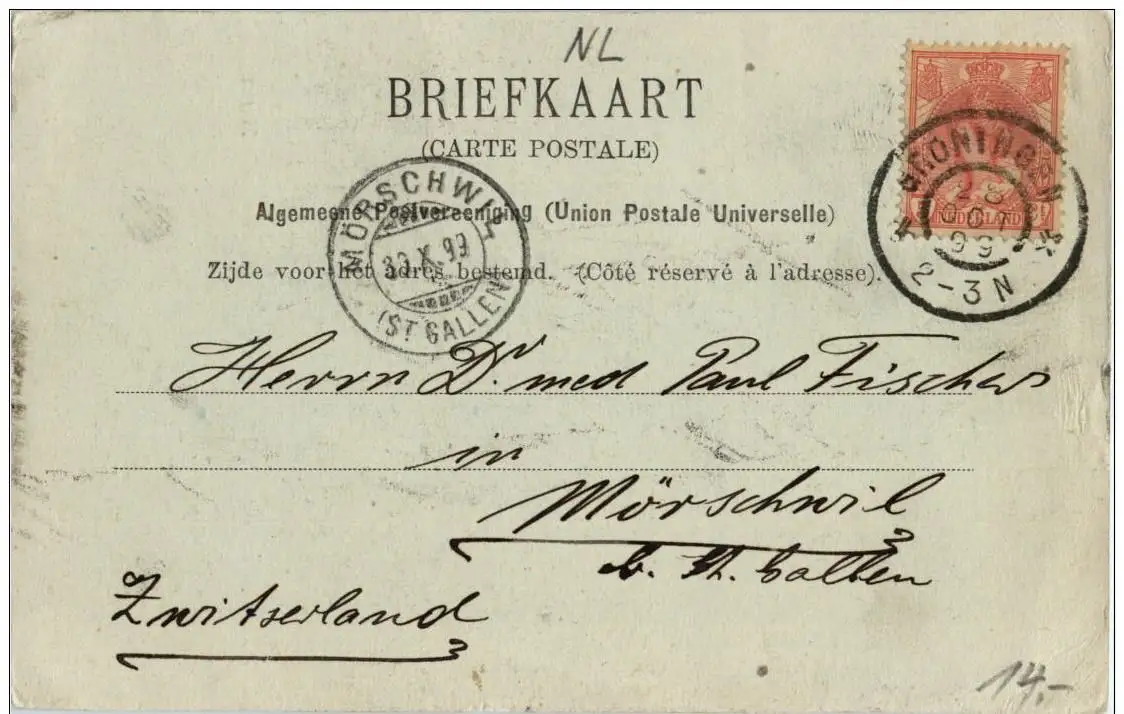 NL
BRIEFKAART
(CARTE POSTALE)
Algemeene Postvereeniging (Union Postale Universelle)
Zijde voor het adres bestemd. (Côté réservé à l'adresse).
GRONINGEN
28
OCT
99
2-3N
NEDERLAND
MÖRSCHWIL
30.X.99
(ST GALLEN)
Herrn Dr. med Paul Fischer
in
Mörschwil
b. St. Gallen
Zwitserland
14,-